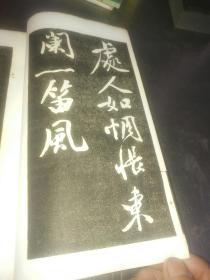 處人如惆悵東
闌一笛風